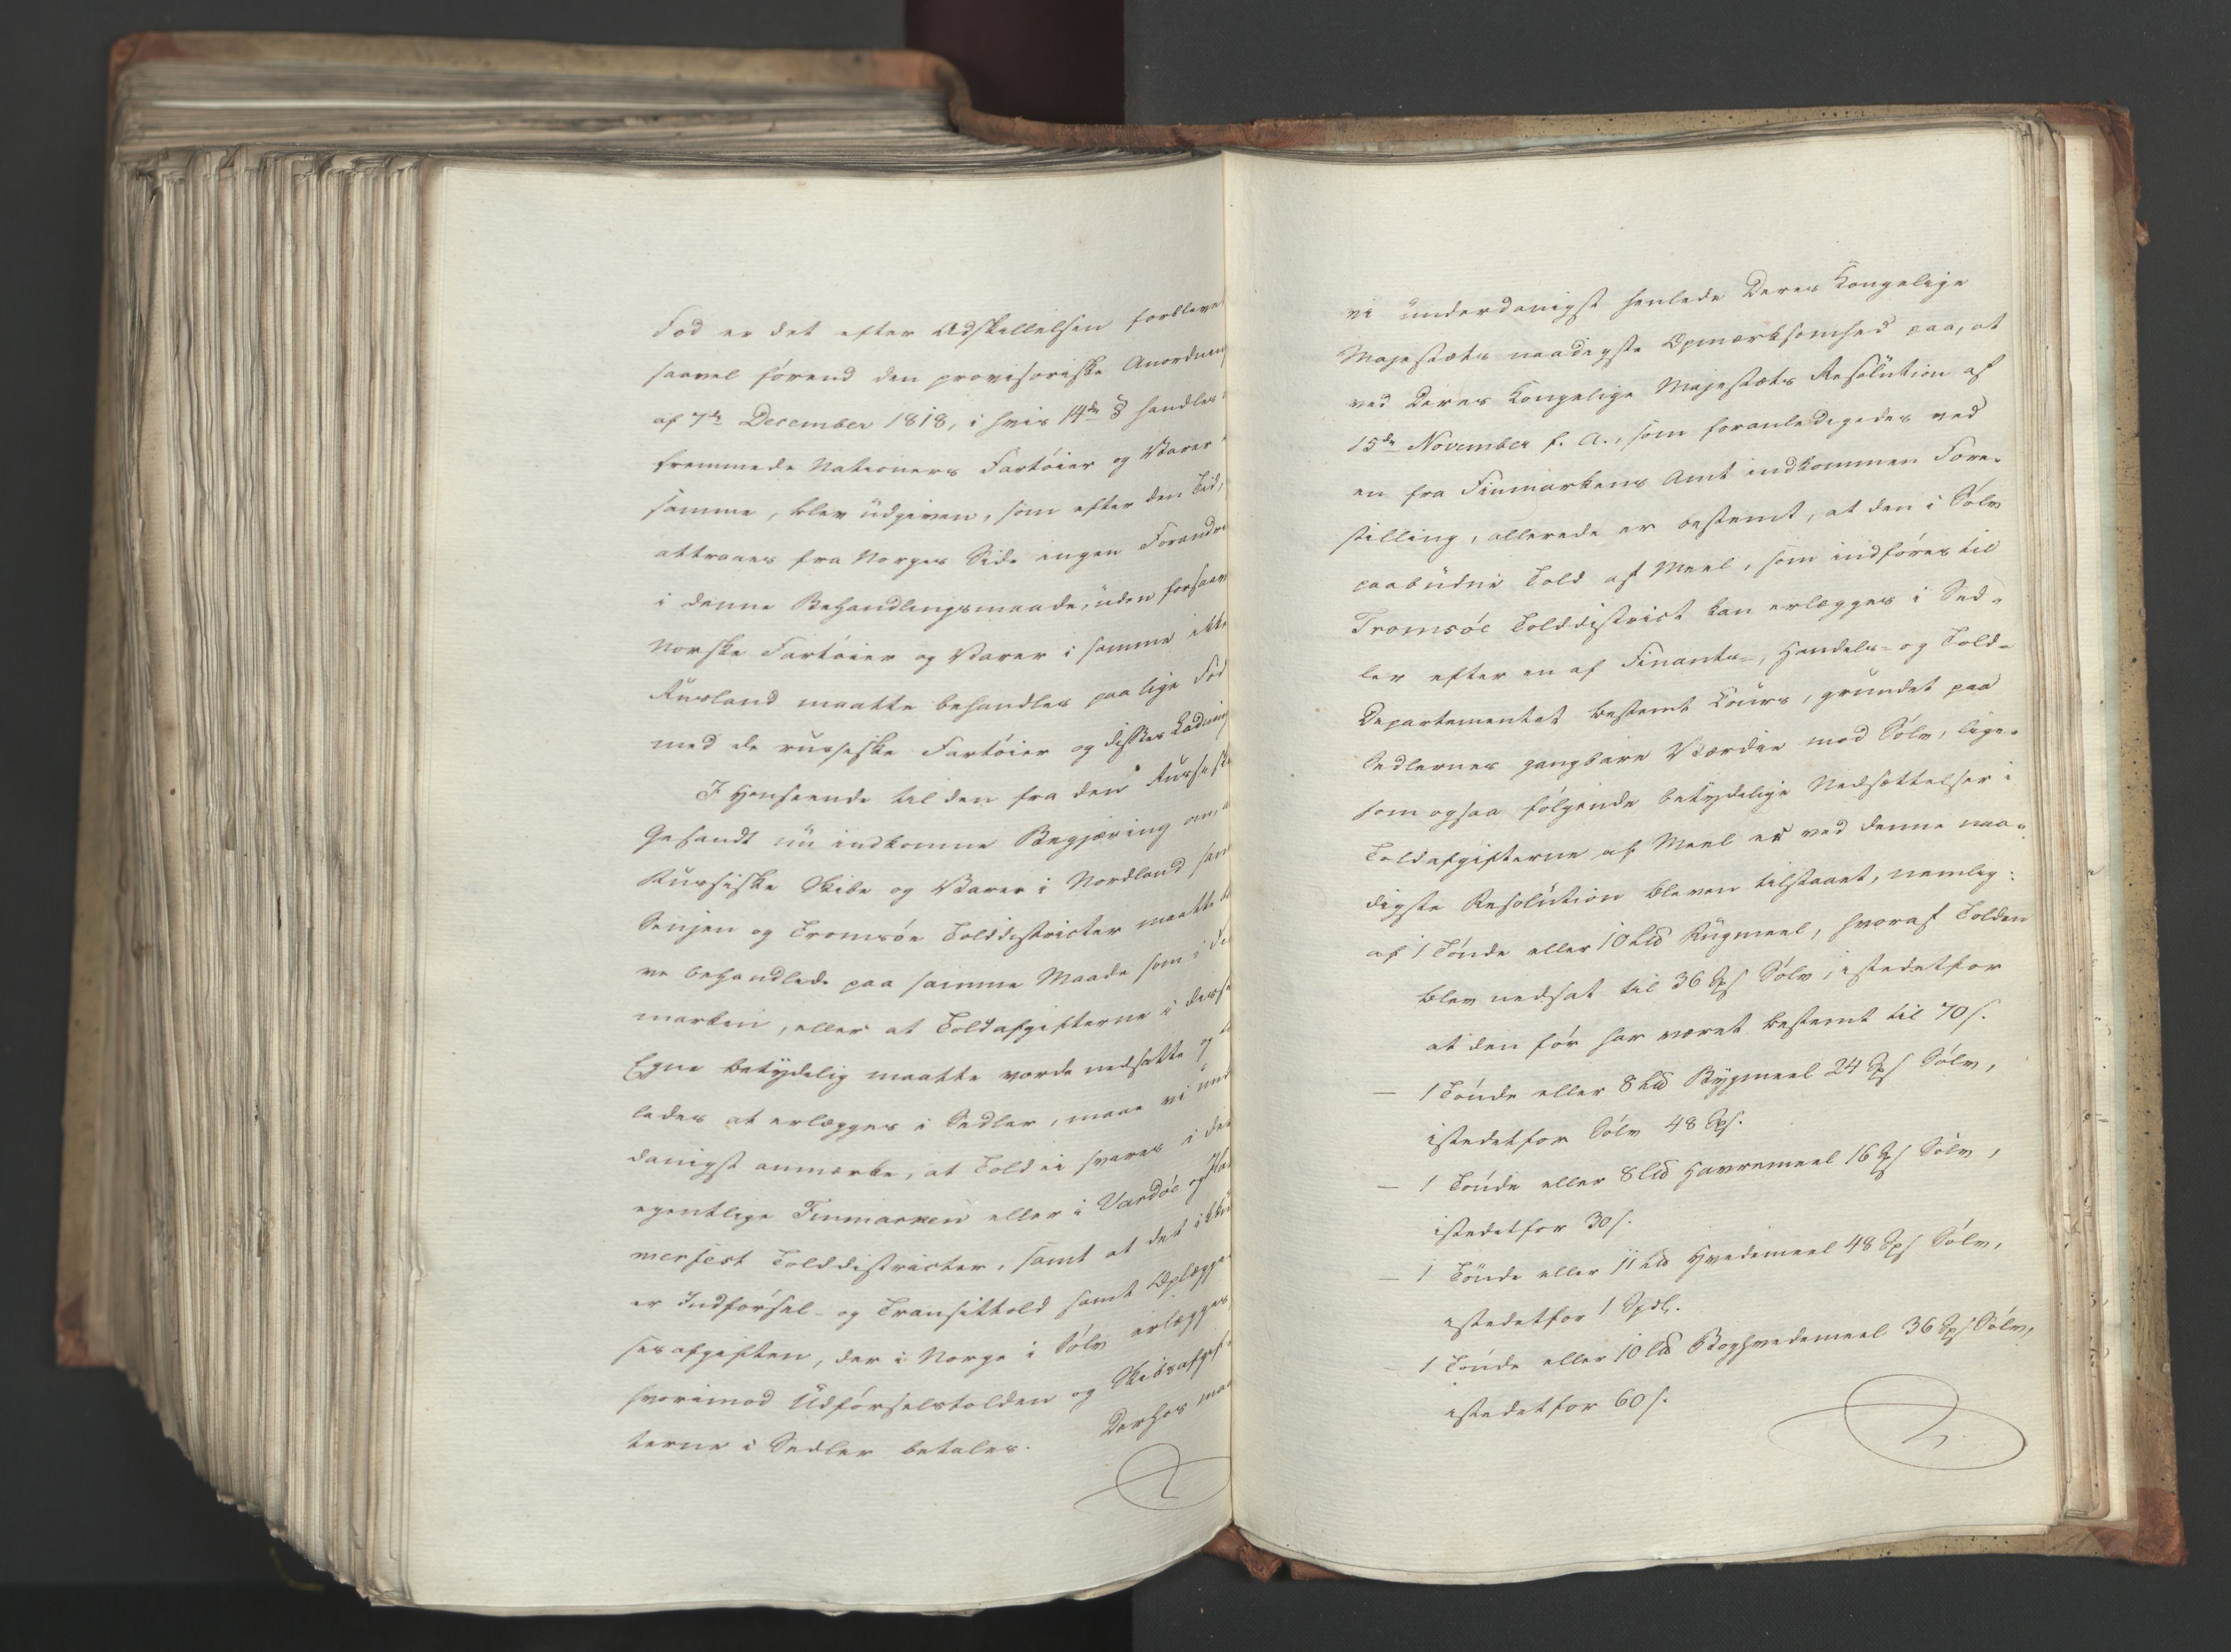 Fod er det efter Adskillelsen forblevet
saavel förend den provisoriske Anordning
af 7de December 1818, i hvis 14de § handles
fremmede Nationers Fartöier og Varer
samme, blev udgiven, som efter den Tid,
attraaes fra Norges Side ingen Forandr
i denne Behandlingsmaade, uden forsaav
Norske Fartöier og Varer i samme ikke
Rusland maatte behandles paa lige Fod
med de russiske Fartöier og disses Ladning
I Henseende til den fra den Russiske
Gesandt nu indkomne Begjæring om, a
Russiske Skibe og Varer i Nordland sam
Senjen og Tromsöe Tolddistricter maatte bl
ve behandlede paa samme Maade som i Fin
marken, eller at Toldafgifterne i disse
Egne betydelig maatte vorde nedsatte og
ledes at erlægges i Sedler, maae vi und
danigst anmærke, at Told ei svares i det
egentlige Finmarken eller i Vardöe og Ham
merfest Tolddistricter, samt at det ikkun
er Indförsel- og Transittold samt Oplægge
sesafgiften, der i Norge i Sölv erlægges
hvorimod Udförselstolden og Skibsafgif-
terne i Sedler betales.
Derhos maa
vi underdanigst henlede Deres Kongelige
Majestæts naadigste Opmærksomhed paa, at
ved Deres Kongelige Majestæts Resolution af
15de November f. A., som foranledigedes ved
en fra Finmarkens Amt indkommen Fore-
stilling, allerede er bestemt, at den i Sölv
paabudne Told af Meel, som indföres til
Tromsöe Tolddistrict kan erlægges i Sed-
ler efter en af Finants-, Handels- og Told-
Departementet bestemt Cours, grundet paa
Sedlernes gangbare Værdie mod Sölv, lige-
som ogsaa fölgende betydelige Nedsættelser i
Toldafgifterne af Meel er ved denne naa-
digste Resolution bleven tilstaaet, nemlig:
af 1 Tönde eller 10 Lld Rugmeel, hvoraf Tolden
blev nedsat til 36 Sps Sölv, istedetfor
at den för har været bestemt til 70 s.
— 1 Tönde eller 8 Lld Bygmeel 24 Sps Sölv,
istedetfor Sölv 48 Sps.
— 1 Tönde eller 8 Lld Havremeel 16 Sps Sölv,
istedetfor 30 s.
— 1 Tönde eller 11 Lld Hvedemeel 48 Sps Sölv,
istedetfor 1 Spdl.
— 1 Tönde eller 10 Lld Boghvedemeel 36 Sps Sölv,
istedetfor 60 s.